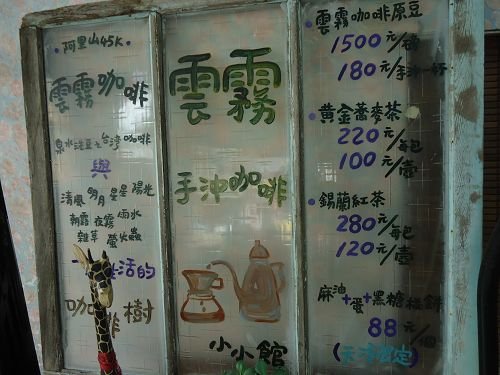 阿里山45K
雲霧咖啡
泉水洗豆之台湾咖啡
與
清風 明月 星星 陽光
朝露 夜霧 雨水
雜草 螢火蟲
生活的
咖啡樹
雲霧
手沖咖啡
小小館
雲霧咖啡原豆
1500元/磅
180元/手沖一杯
黄金蕎麥茶
220元/每包
100元/壺
錫蘭紅茶
280元/每包
120元/壺
麻油+蛋+黑糖
88元/個